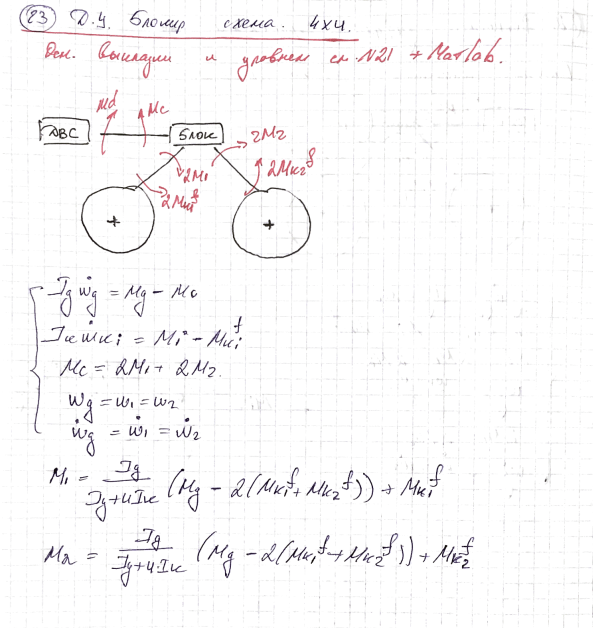 23 Д.У. Блокир схема. 4x4.
Осн. выкладки и уровнен см. N21 + Matlab.
Md Mc
ДВС БЛОК 2M2
2M1 2Mк2^f
2Mк1^f
Jg ω̇g = Mg − Mc
Jк ω̇кi = Mi − Mкi^f
Mc = 2M1 + 2M2.
ωg = ω1 = ω2
ω̇g = ω̇1 = ω̇2
M1 = Jg / (Jg+4Jк) (Mg − 2(Mк1^f + Mк2^f)) + Mк1^f
M2 = Jg / (Jg+4·Jк) (Mg − 2(Mк1^f + Mк2^f)) + Mк2^f